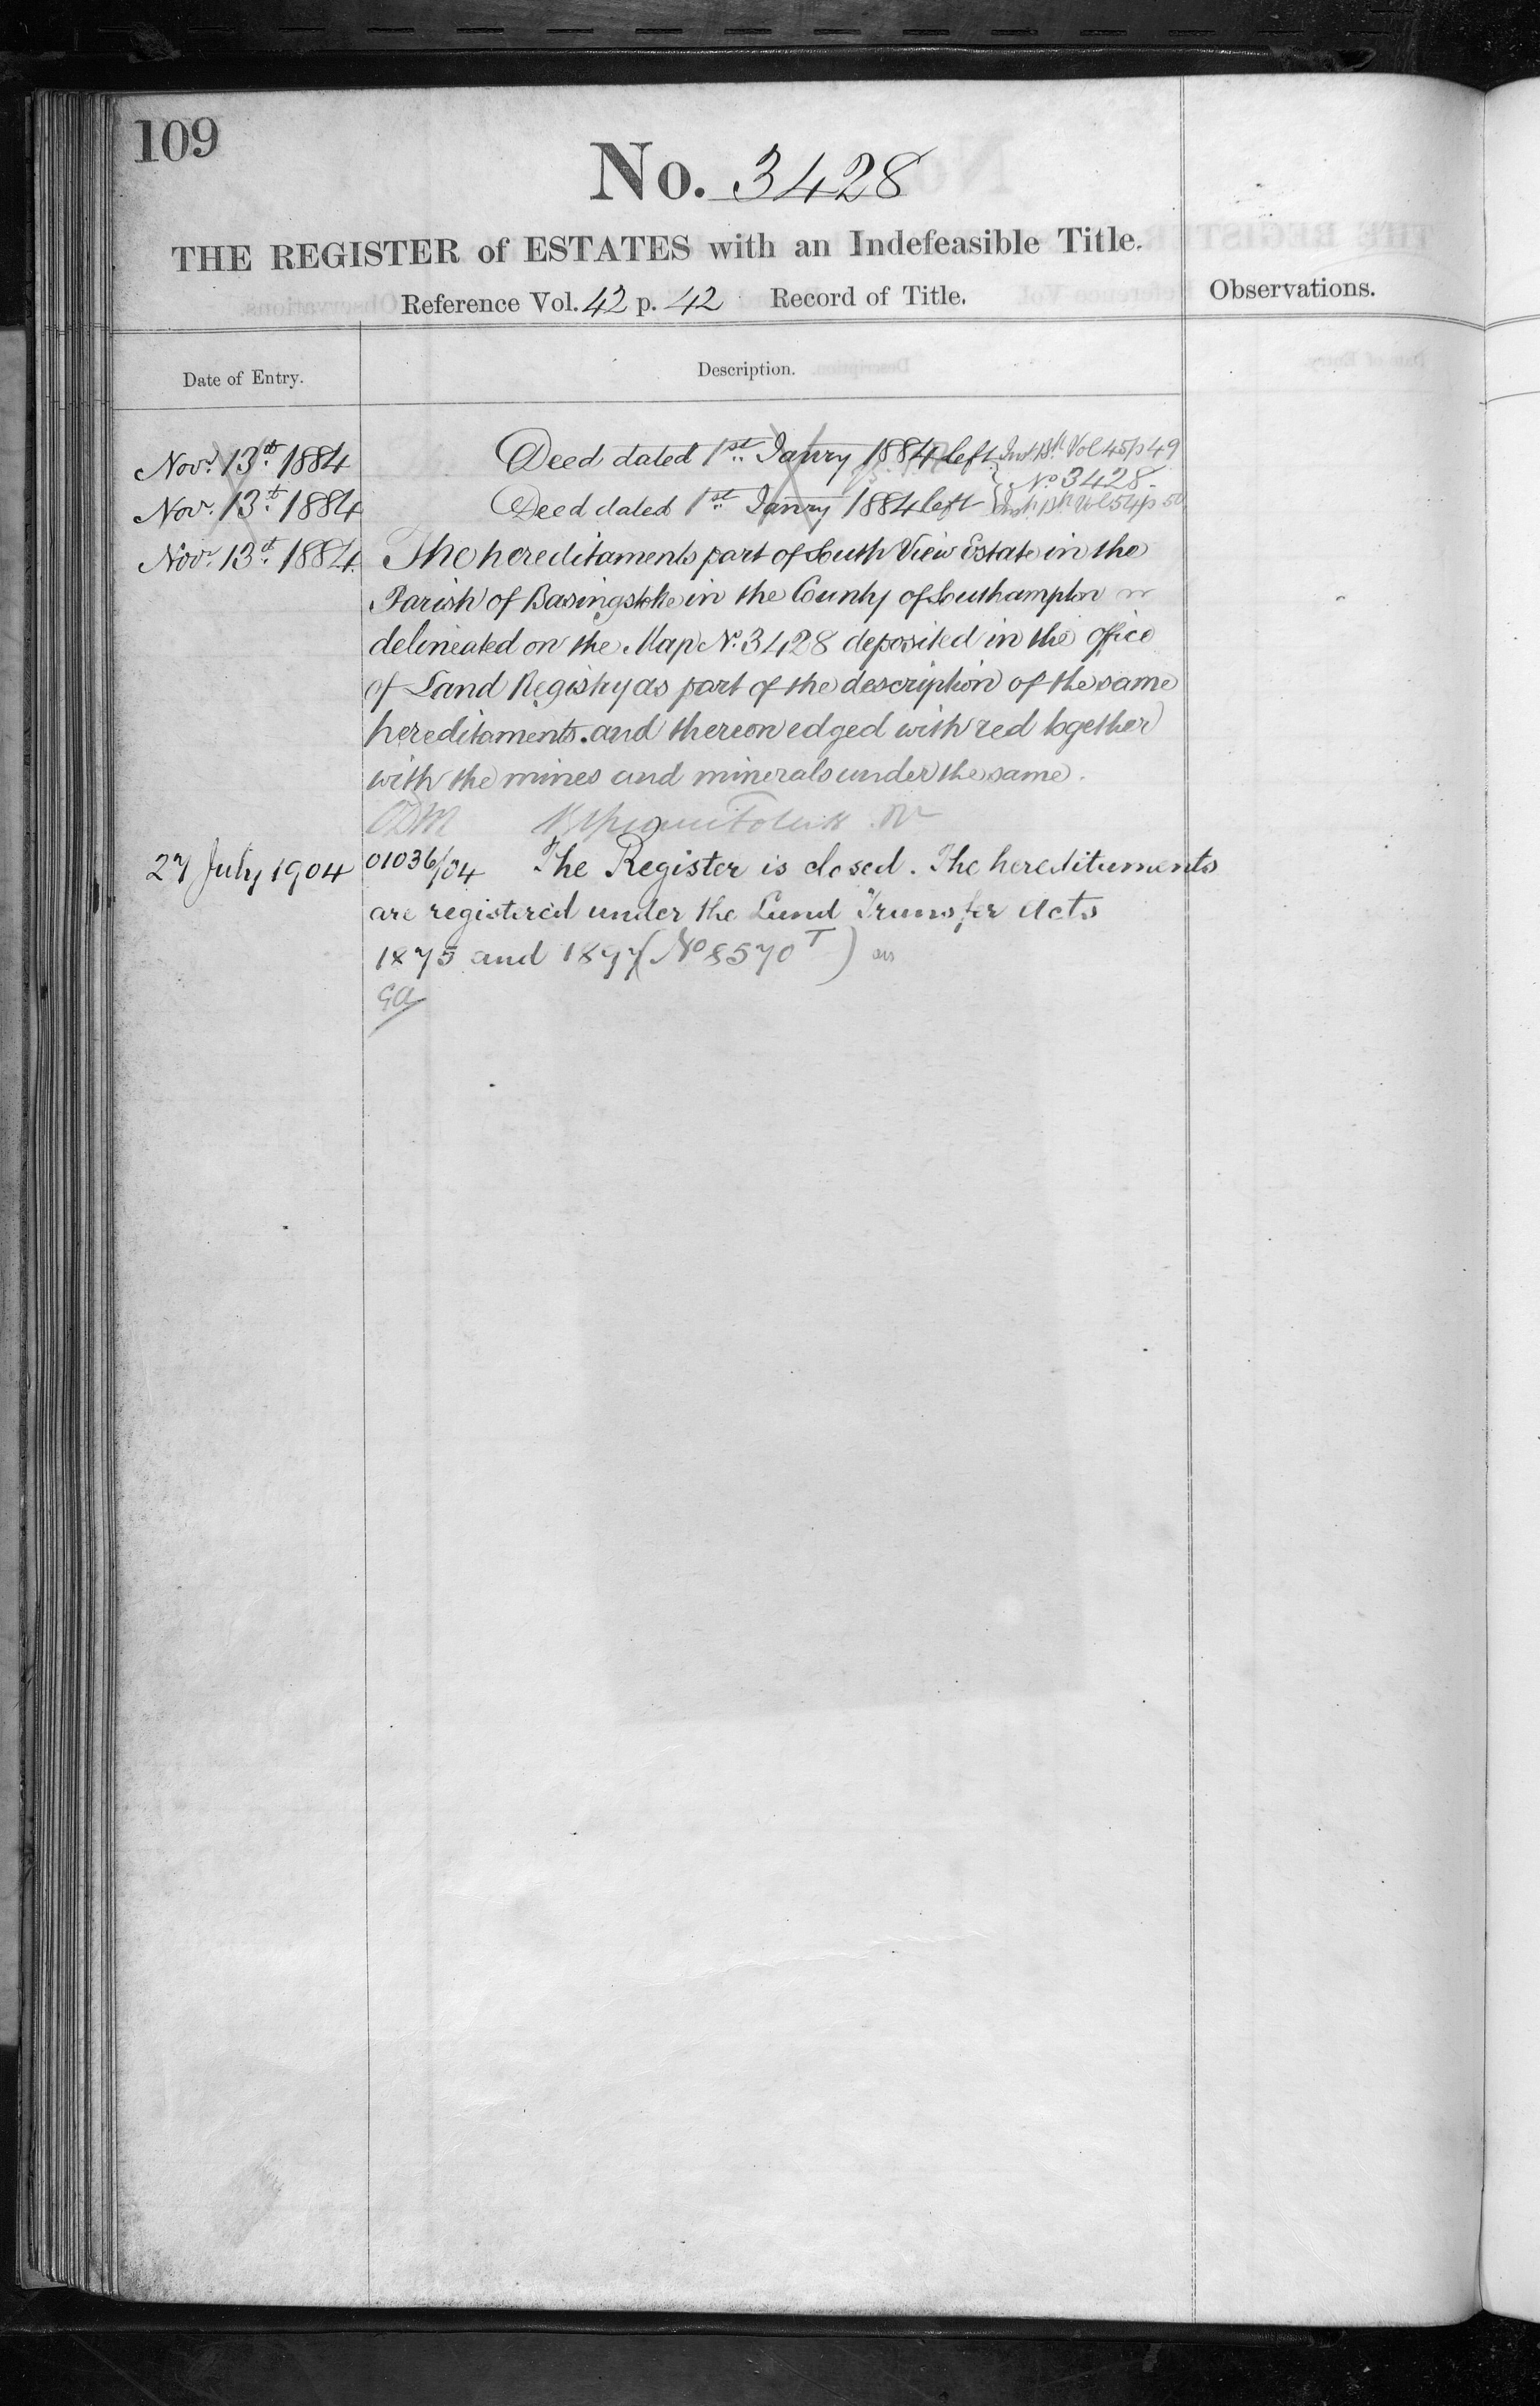 109
No. 3428
THE REGISTER of ESTATES with an Indefeasible Title.
Reference Vol. 42 p. 42 Record of Title.
Observations.
Date of Entry.
Description.
Novr. 13th 1884 Deed dated 1st Janry 1884 left Vol 45 p 49
No 3428
Novr. 13th 1884 Deed dated 1st Janry 1884 left Vol 54 p 50
Novr. 13th 1884. The hereditaments part of South View Estate in the
Parish of Basingstoke in the County of Southampton
delineated on the Map No. 3428 deposited in the office
of Land Registry as part of the description of the same
hereditaments. and thereon edged with red together
with the mines and minerals under the same.
27 July 1904 01036/04 The Register is closed. The hereditaments
are registered under the Land Transfer Acts
1875 and 1897 (No 8570 T)